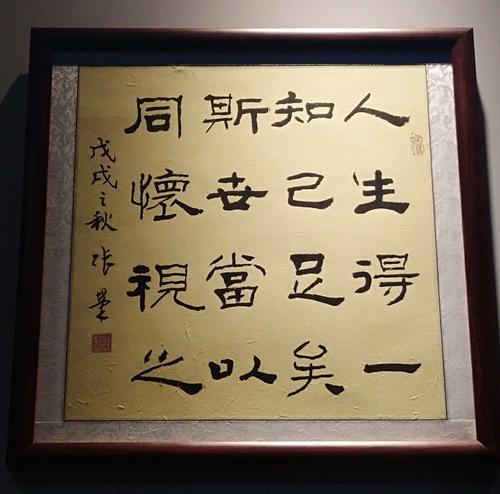 人生得一
知己足矣
斯世當以
同懷視之
戊戌之秋 张